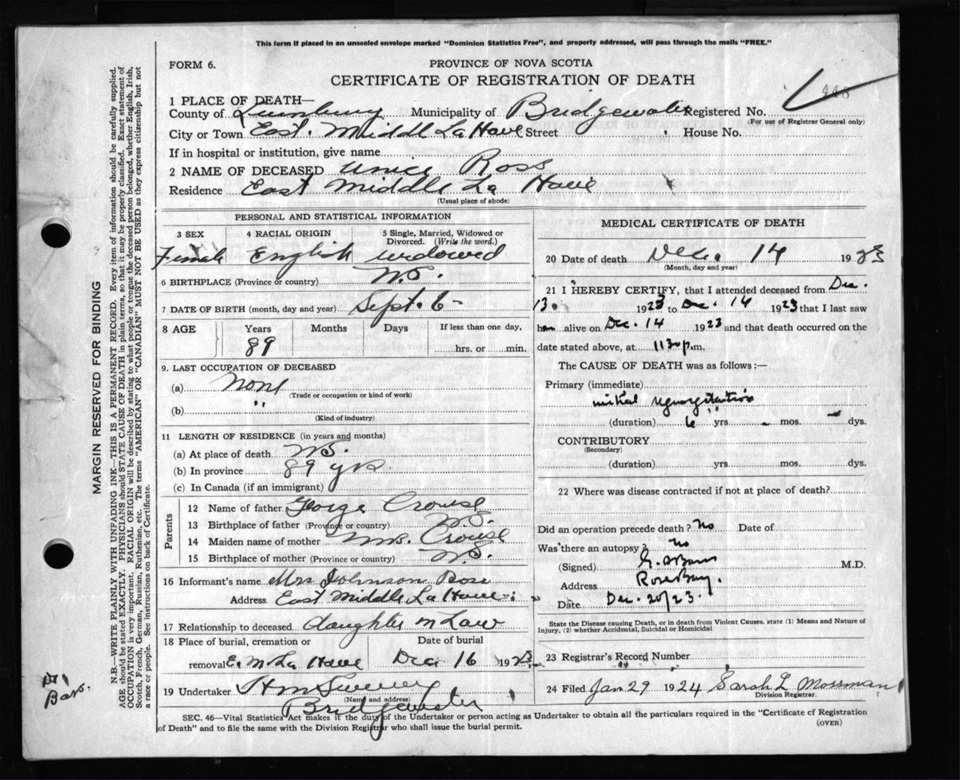 This form if placed in an unsealed envelope marked "Dominion Statistics Free", and properly addressed, will pass through the mails "FREE."
FORM 6.
PROVINCE OF NOVA SCOTIA
CERTIFICATE OF REGISTRATION OF DEATH
448
1 PLACE OF DEATH—
County of Lunenburg Municipality of Bridgewater Registered No.
(For use of Registrar General only)
City or Town East Middle La Have Street House No.
If in hospital or institution, give name
2 NAME OF DECEASED Unice Ross
Residence East Middle La Have
(Usual place of abode)
PERSONAL AND STATISTICAL INFORMATION
3 SEX 4 RACIAL ORIGIN 5 Single, Married, Widowed or Divorced. (Write the word.)
Female English widowed
6 BIRTHPLACE (Province or country) N.S.
7 DATE OF BIRTH (month, day and year) Sept. 6-
8 AGE Years Months Days If less than one day,
89 hrs. or min.
9. LAST OCCUPATION OF DECEASED
(a) None
(Trade or occupation or kind of work)
(b) "
(Kind of industry)
11 LENGTH OF RESIDENCE (in years and months)
(a) At place of death N.S.
(b) In province 89 yrs
(c) In Canada (if an immigrant)
Parents
12 Name of father George Crouse
13 Birthplace of father (Province or country) N.S.
14 Maiden name of mother Mrs. Crouse
15 Birthplace of mother (Province or Country) N.S.
16 Informant's name Mrs Johnson Ross
Address East Middle La Have
17 Relationship to deceased daughter n Law
18 Place of burial, cremation or Date of burial
removal E. M La Have Dec 16 1923
19 Undertaker
(Name and address)
Bridgewater
MEDICAL CERTIFICATE OF DEATH
20 Date of death Dec. 14 1923
(Month, day and year)
21 I HEREBY CERTIFY, that I attended deceased from Dec.
13. 1923 to Dec. 14 1923 that I last saw
alive on Dec. 14 1923 and that death occurred on the
date stated above, at 1130 p.m.
The CAUSE OF DEATH was as follows :—
Primary (immediate)
mitral regurgitation
(duration) 6 yrs - mos. - dys.
CONTRIBUTORY
(Secondary)
(duration) yrs. mos. dys.
22 Where was disease contracted if not at place of death?
Did an operation precede death? No Date of
Was there an autopsy? No
(Signed) M.D.
Address Rose Bay.
Date Dec. 20/23.
State the Disease causing Death, or in death from Violent Causes, state (1) Means and Nature of
Injury, (2) whether Accidental, Suicidal or Homicidal
23 Registrar's Record Number
24 Filed Jan 29 1924 Sarah L Mossman
Division Registrar.
SEC. 46—Vital Statistics Act makes it the duty of the Undertaker or person acting as Undertaker to obtain all the particulars required in the "Certificate of Registration
of Death" and to file the same with the Division Registrar who shall issue the burial permit.
(OVER)
MARGIN RESERVED FOR BINDING
N.B.—WRITE PLAINLY WITH UNFADING INK—THIS IS A PERMANENT RECORD. Every item of information should be carefully supplied.
AGE should be stated EXACTLY. PHYSICIANS should STATE CAUSE OF DEATH in plain terms, so that it may be properly classified. Exact statement of
OCCUPATION is very important. RACIAL ORIGIN will be described by stating to what people or tongue the deceased person belonged, whether English, Irish,
Scotch, French, German, Russian, Ruthenian, etc. The terms "AMERICAN" or "CANADIAN" MUST NOT BE USED as they express citizenship but not
a race or people. See instructions on back of Certificate.